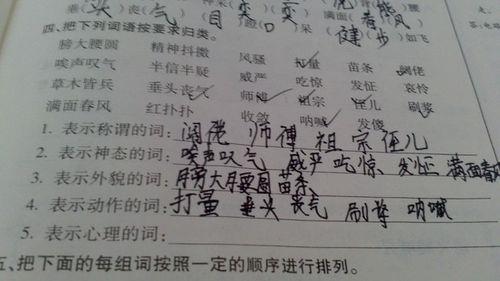 垂(头)(丧)气 目(瞪)(口)呆 满面(春)(风)
(健)(步)如飞
四、把下列词语按要求归类。
膀大腰圆 精神抖擞 风骚 打量 苗条 阔佬
唉声叹气 半信半疑 威严 吃惊 发怔 哀怜
草木皆兵 垂头丧气 师傅 祖宗 侄儿 刷浆
满面春风 红扑扑 收敛 呐喊 发傻
1. 表示称谓的词：阔佬 师傅 祖宗 侄儿
2. 表示神态的词：唉声叹气 威严 吃惊 发怔 满面春风
3. 表示外貌的词：膀大腰圆 苗条
4. 表示动作的词：打量 垂头丧气 刷浆 呐喊
5. 表示心理的词：
五、把下面的每组词按照一定的顺序进行排列。